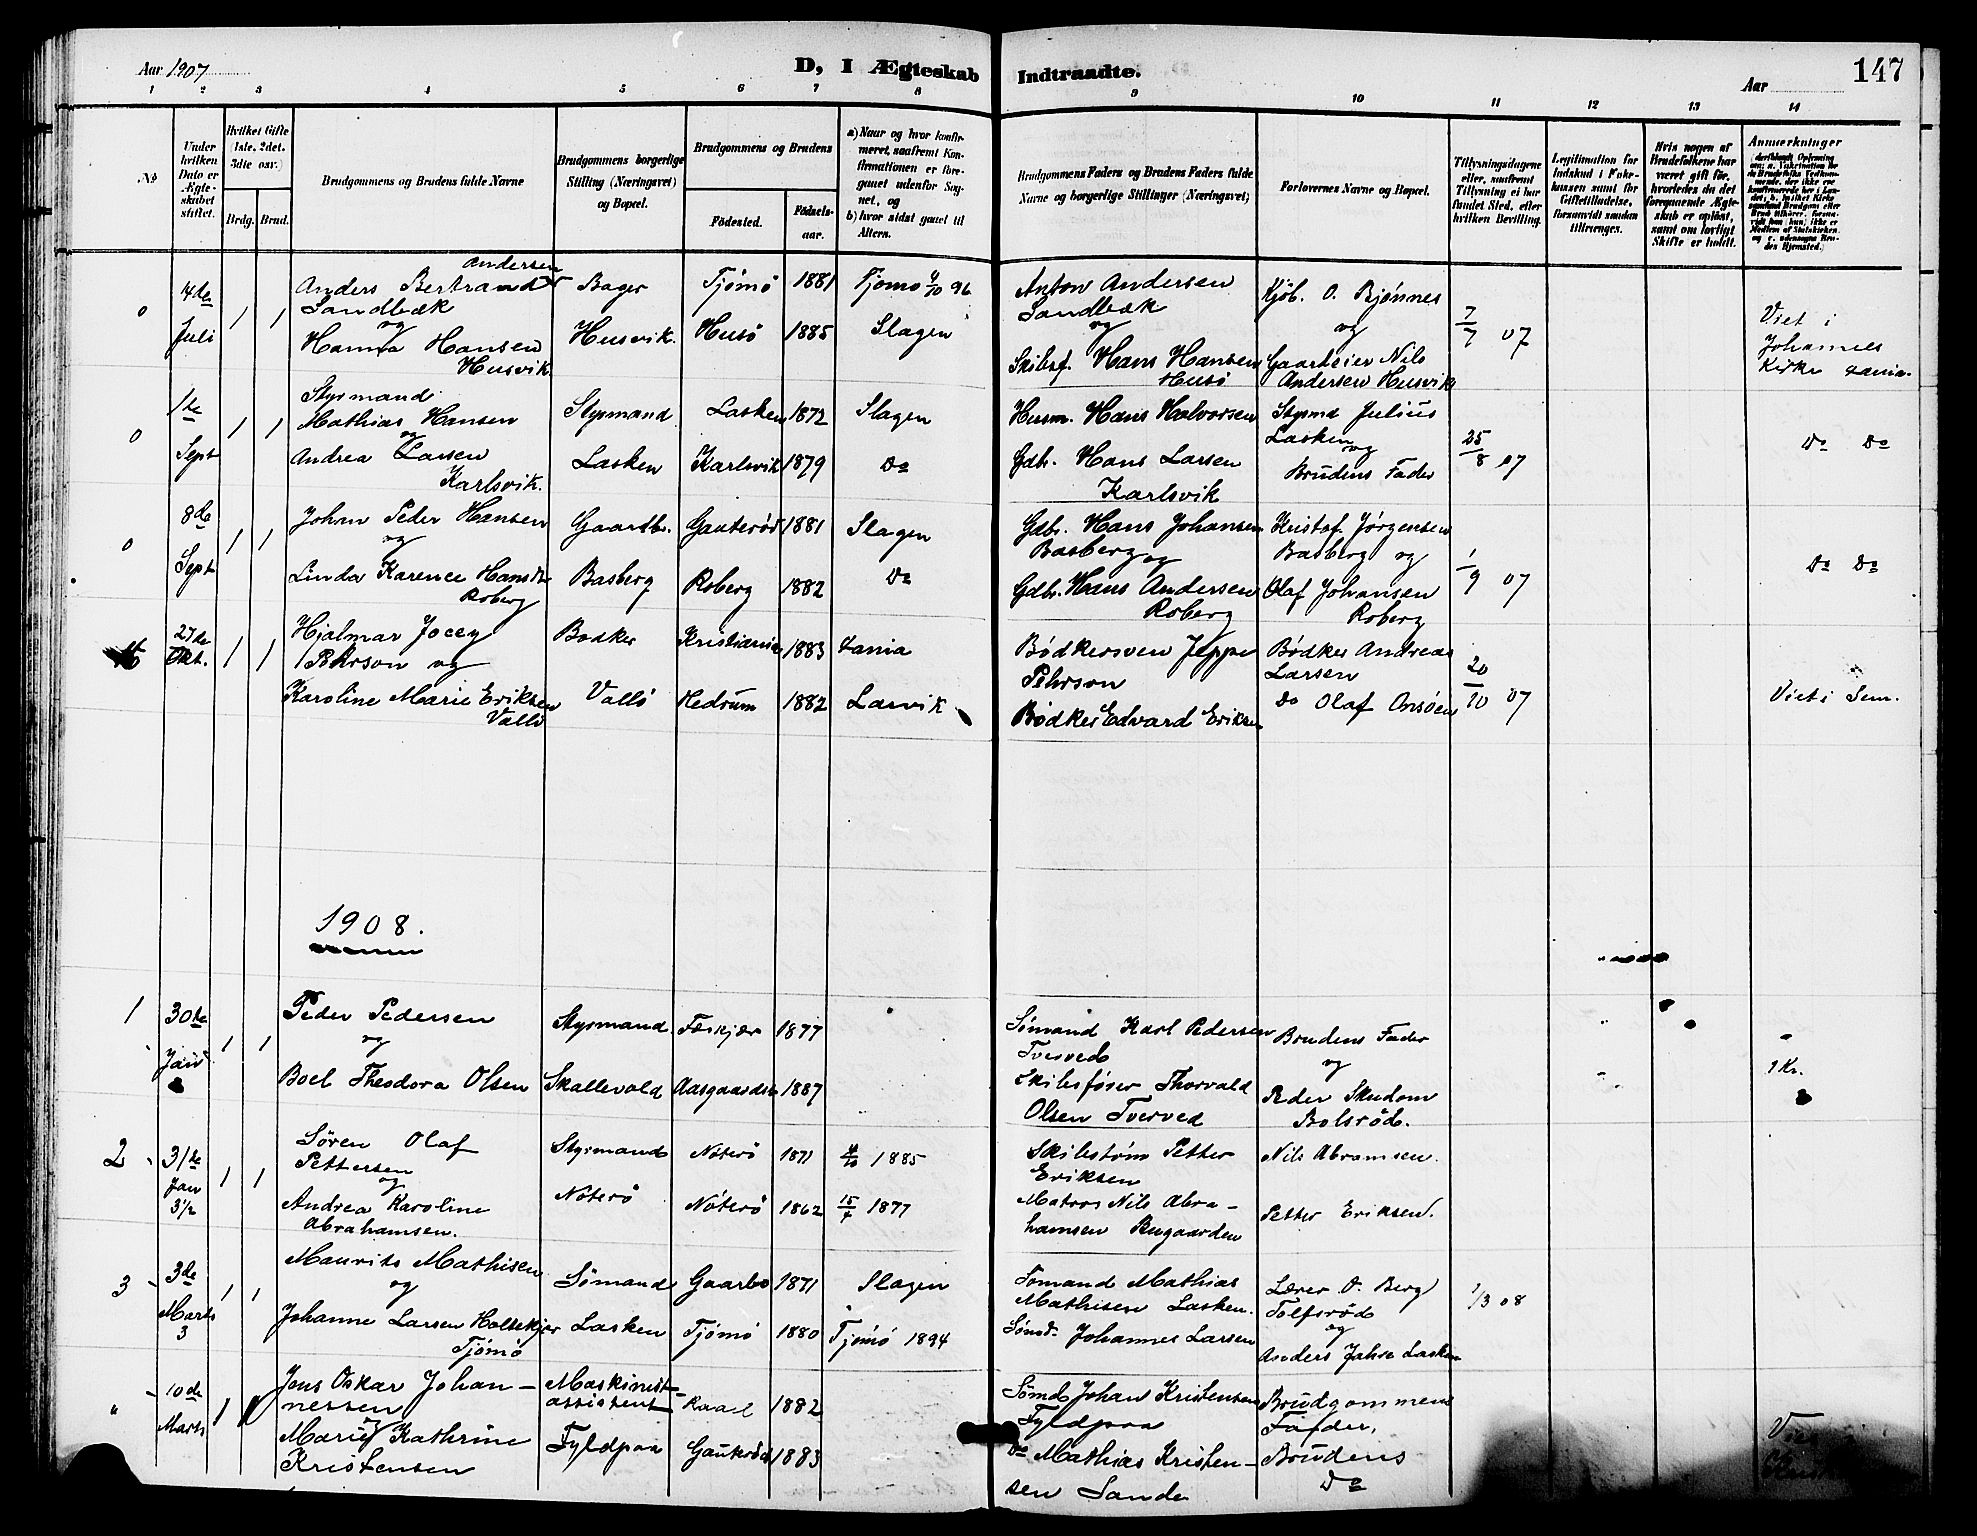 Aar 1907
D, I Ægteskab
Indtraadte.
Aar
147
1 2 3 4 5 6 7 8 9 10 11 12 13 14
No
Under hvilken Dato er Ægteskabet stiftet.
Hvilket Gifte (1ste, 2det, 3die osv.)
Brdg.
Brud.
Brudgommens og Brudens fulde Navne
Brudgommens borgerlige Stilling (Næringsvei) og Bopæl.
Brudgommens og Brudens
Fødested.
Fødselsaar.
a) Naar og hvor konfirmeret, saafremt Konfirmationen er foregaaet udenfor Sognet, og
b) hvor sidst gaaet til Alters.
Brudgommens Faders og Brudens Faders fulde Navne og borgerlige Stillinger (Næringsvei)
Forlovernes Navne og Bopæl.
Tillysningsdagene eller, saafremt Tillysning ei har fundet Sted, efter hvilken Bevilling.
Legitimation for Indskud i Enkekassen samt for Giftetilladelse, forsaavidt saadan tiltrænges.
Hvis nogen af Brudefolkene har været gift før, hvorledes da det foregaaende Ægteskab er opløst, samt om lovligt Skifte er holdt.
Anmærkninger
0 14de Juli 1 1
Andersen
Anders Bertrand
Sandbæk
og
Hanna Hansen
Husvik
Bager
Husvik.
Tjømø 1881
Husø 1885
Tjømø 4/10 96
Slagen
Anton Andersen
Sandbæk
og
Skibsf. Hans Hansen
Husø
Kjøb. O. Bjønnes
og
Gaardeier Nils
Andersen Husvik
7/7 07
Viet i
Johannes
Kirke Xania.
0 1te Sept 1 1
Styrmand
Mathias Hansen
og
Andrea Larsen
Karlsvik.
Styrmand
Lasken
Lasken 1872
Karlsvik 1879
Slagen
Do
Husm. Hans Halvorsen
Gdbr. Hans Larsen
Karlsvik
Styrmd Julius
Lasken og
Brudens Fader
25/8 07
Do Do
0 8de Sept 1 1
Johan Peder Hansen
og
Linda Karence Hansdt
Roberg
Gaardbr.
Basberg
Gauterød 1881
Roberg 1882
Slagen
Do
Gdbr. Hans Johansen
Basberg og
Gdbr. Hans Andersen
Roberg
Kristof. Jørgensen
Basberg og
Olaf Johansen
Roberg
1/9 07
Do Do
27de Okt. 1 1
Hjalmar Jocey
Pehrson og
Karoline Marie Eriksen
Vallø
Bødker
Vallø
Kristiania 1883
Hedrum 1882
Xania
Larvik
Bødkersven Jeppe
Pehrson
Bødker Edvard Eriksen
Bødker Andreas
Larsen
Do Olaf Onsøen
20/10 07
Viet i Sem.
1908.
1 30te Jan 1 1
Peder Pedersen
og
Boel Theodora Olsen
Styrmand
Skallevold
Feskjær 1877
Aasgaardstr 1887
Sømand Karl Pedersen
Tverved
Skibsfører Thorvald
Olsen Tverved
Brudens Fader
og
Peder Skudom
Bolsrød.
1 Kr.
2 31te Jan 31/1 1 1
Søren Olaf
Pettersen
og
Andrea Karoline
Abrahamsen.
Styrmand
Nøterø
Nøterø 1871
Nøterø 1862
4/10 1885
15/7 1877
Skibstøm Petter
Eriksen
Matros Nils Abra-
hamsen Rugaarden
Nils Abramsen.
Petter Eriksen.
3 3de Marts 3 1 1
Maurits Mathisen
og
Johanne Larsen Holtekjær
Tjømø
Sømand
Lasken
Gaarbo 1871
Tjømø 1880
Slagen
Tjømø 1894
Sømand Mathias
Mathisen Lasken.
Sømd. Johannes Larsen
Lærer O. Berg
Tolfsrød
og
Anders Jahre Lasken
1/3 08
" 10de Marts 1 1
Jens Oskar Johan-
nessen
Marie Kathrine
Kristensen
Maskinist-
assistent
Fyldpaa
Raael 1882
Gauterød 1883
Sømd Johan Kristensen
Fyldpaa
Do Mathias Kristen-
sen Sande
Brudgommens
Fader,
Brudens
Do